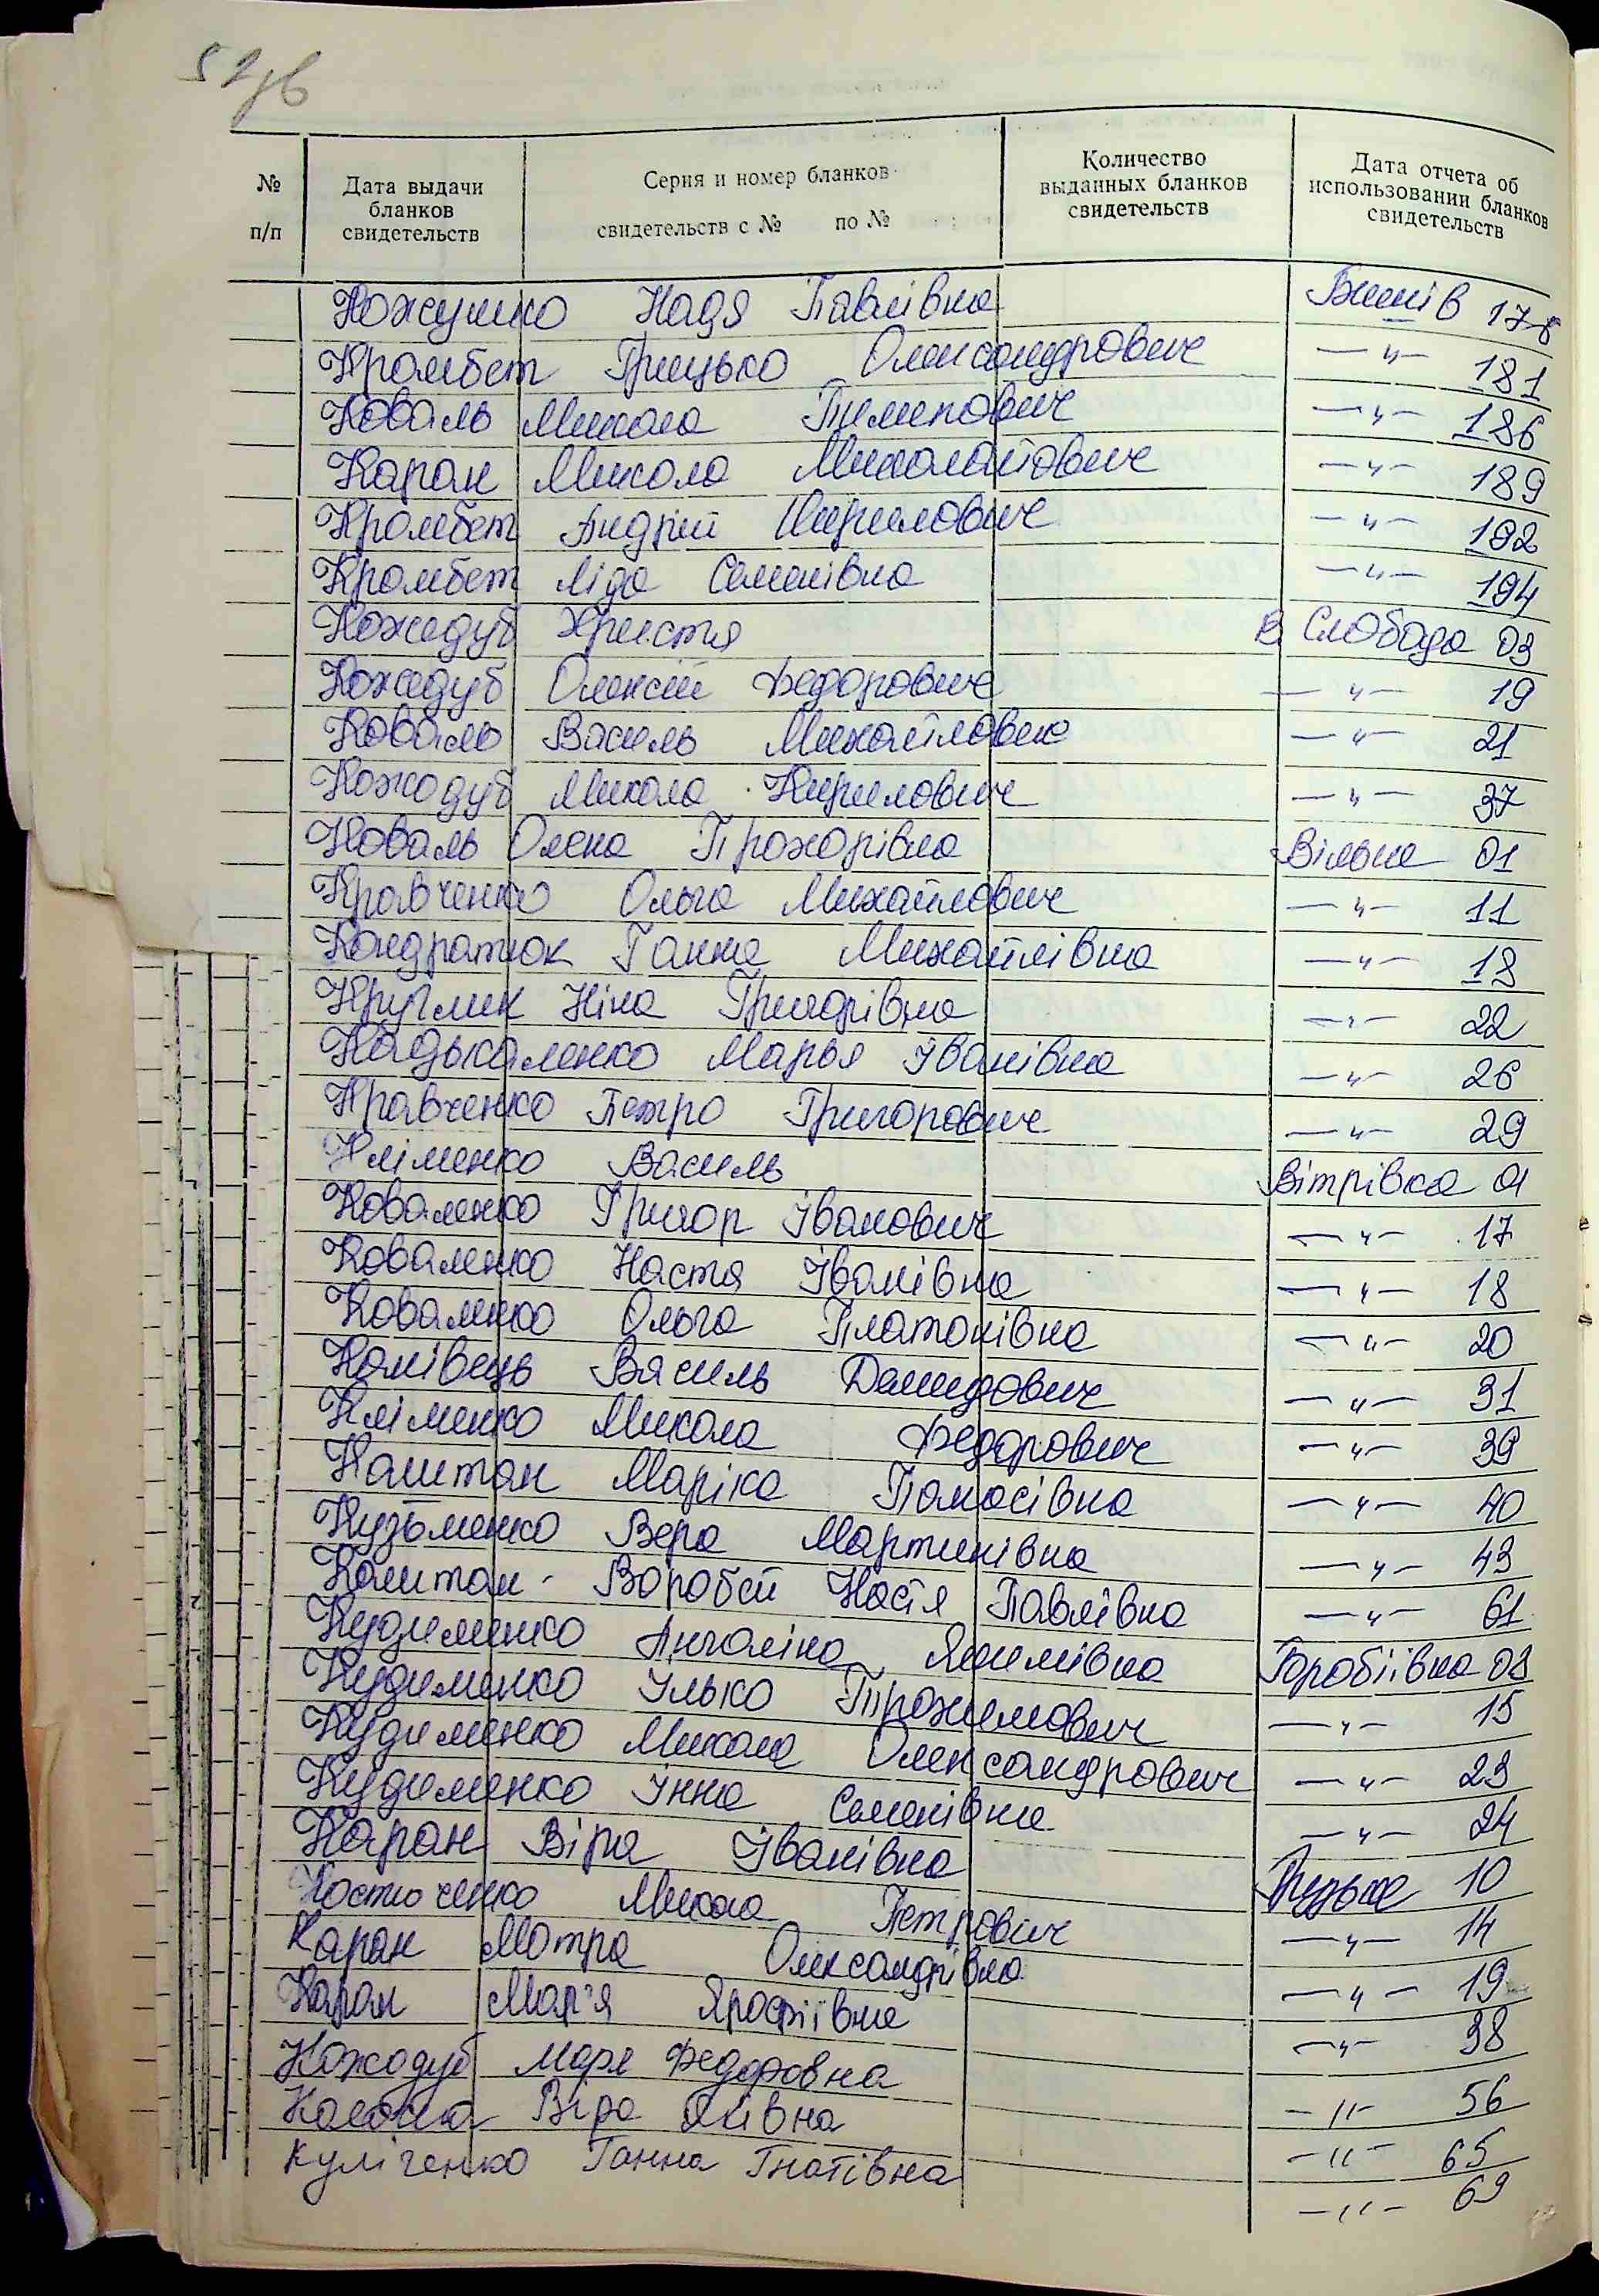 52зв
№ п/п
Дата выдачи бланков свидетельств
Серия и номер бланков свидетельств с № по №
Количество выданных бланков свидетельств
Дата отчета об использовании бланков свидетельств
Кожушко Надя Павлівна 178
Кромбет Грицько Олександрович —"— 181
Коваль Микола Пилипович —"— 186
Каран Микола Миколайович —"— 189
Кромбет Андрій Кирилович —"— 192
Кромбет Ліда Семенівна —"— 194
Кожедуб Христя В. Слобода 03
Кожедуб Олексій Федорович —"— 19
Коваль Василь Михайлович —"— 21
Кожодуб Микола Кирилович —"— 37
Коваль Олена Прохорівна Вільна 01
Кравченко Ольга Михайлович —"— 11
Кондратюк Ганна Михайлівна —"— 18
Круглик Ніна Григорівна —"— 22
Марья Іванівна —"— 26
Кравченко Петро Григорович —"— 29
Кліменко Василь Вітрівка 01
Коваленко Григор Іванович —"— 17
Коваленко Настя Іванівна —"— 18
Коваленко Ольга Платонівна —"— 20
Канівець Василь Демидович —"— 31
Кліменко Микола Федорович —"— 39
Каштан Маріка Панасівна —"— 40
Кузьменко Вера Мартинівна —"— 43
Каштан - Воробей Настя Павлівна —"— 61
Кудименко Ангеліна Якимівна Горобіївка 03
Кудименко Ілько Трохимович —"— 15
Кудименко Микола Олександрович —"— 23
Кудименко Інна Семенівна —"— 24
Каран Віра Іванівна Грузьке 10
Костюченко Микола Петрович —"— 14
Каран Мотра Олександрівна —"— 19
Каран Мар'я Ярофіївна —"— 38
Кожодуб Маря Федоровна —"— 56
Віра Яківна —"— 65
Куліченко Ганна Гнатівна —"— 69